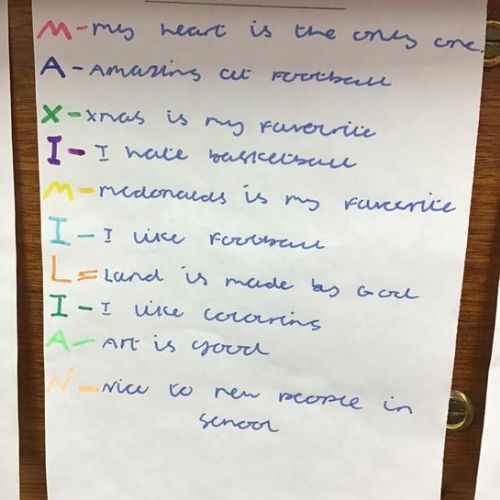 M-my heart is the only one.
A-Amazing at football
X-xmas is my favourite
I-I hate basketball
M-mcdonalds is my favourite
I-I like football
L=Land is made by God
I-I like colouring
A-Art is good
N-Nice to new people in
school